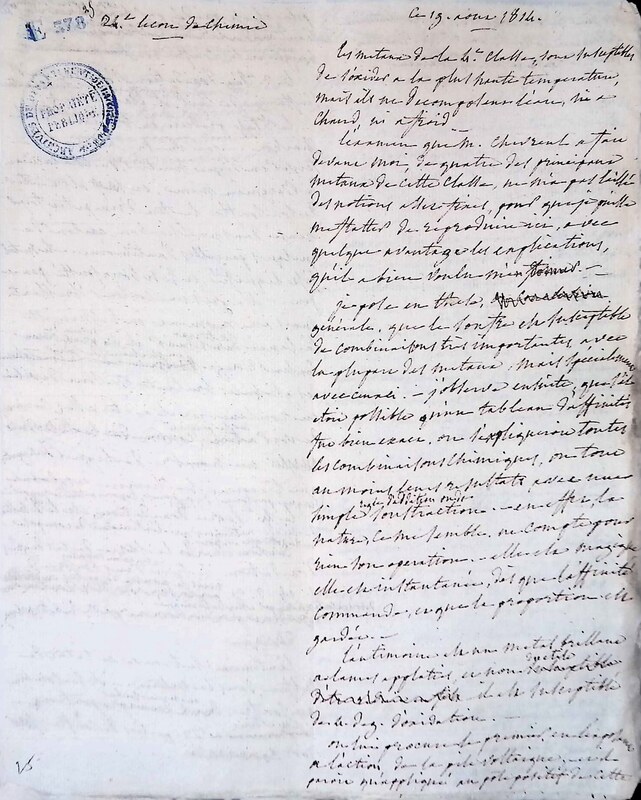 E 378
24.e leçon de Chimie
ce 19. aout 1814.
PROPRIÉTÉ PUBLIQUE
Les métaux de la 4.e Classe, sont susceptibles
de s'oxider a la plus haute température,
mais ils ne decomposent l'eau, ni a
Chaud, ni a froid.
L'examen que M. Chevreul a fait
devant moi, de quatre des principaux
métaux de cette Classe, ne m'a pas laissé
des notions assez fixes, pour que je puisse
me flatter de reproduire ici, avec
quelque avantage les explications,
qu'il a bien voulu me donner. —
je pose en these,
générale, que le soufre est susceptible
de combinaisons très importantes avec
la plupart des métaux, mais specialement
avec ceux ci. — j'observe ensuite, que s'il
etoit possible qu'un tableau d'affinités
fut bien exact, on expliqueroit toutes
les combinaisons chimiques, ou tout
au moins leurs resultats avec une
regle d'addition ou de
simple soustraction. — en effet, la
nature, ce me semble, ne compte pour
rien son operation. — elle est magique
elle est instantanée, dès que l'affinité
commande, et que la proportion est
gardée. —
L'antimoine est un metal brillant
a lames applaties, et non ductile
il est susceptible
de 4. deg. d'oxidation. —
on lui procure le premier, en l'exposant
a l'action de la pile Voltaique, et
au pole positif de cette
25